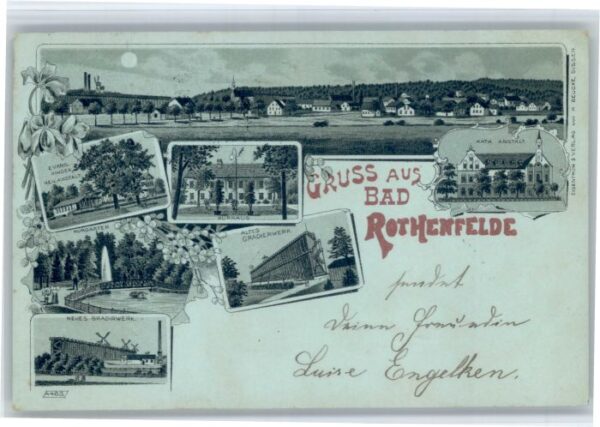 EVANG.
KINDER
HEILANSTALT
KURHAUS
KATH. ANSTALT
GRUSS AUS
BAD
ROTHENFELDE
KURGARTEN
ALTES
GRADIERWERK
NEUES GRADIRWERK
sendet
Deine Freundin
Luise Engelken.